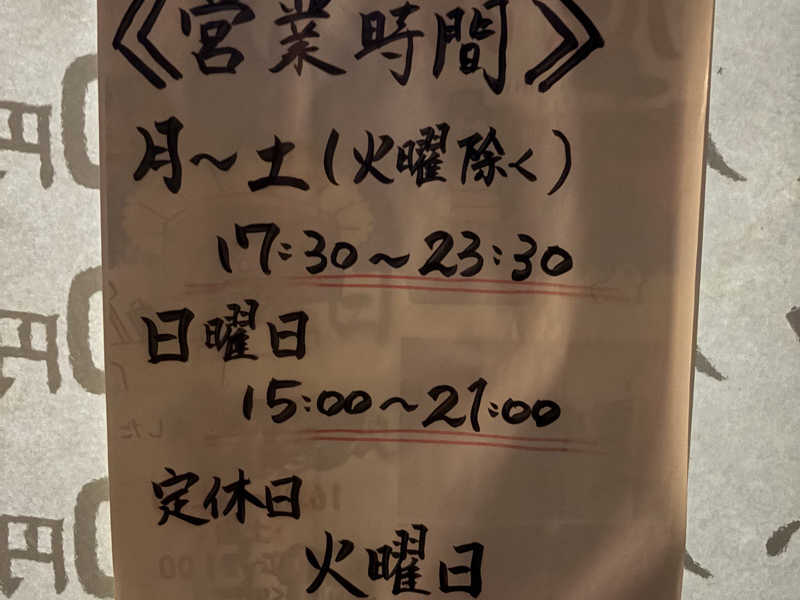 《営業時間》
月～土(火曜除く)
17:30～23:30
日曜日
15:00～21:00
定休日
火曜日